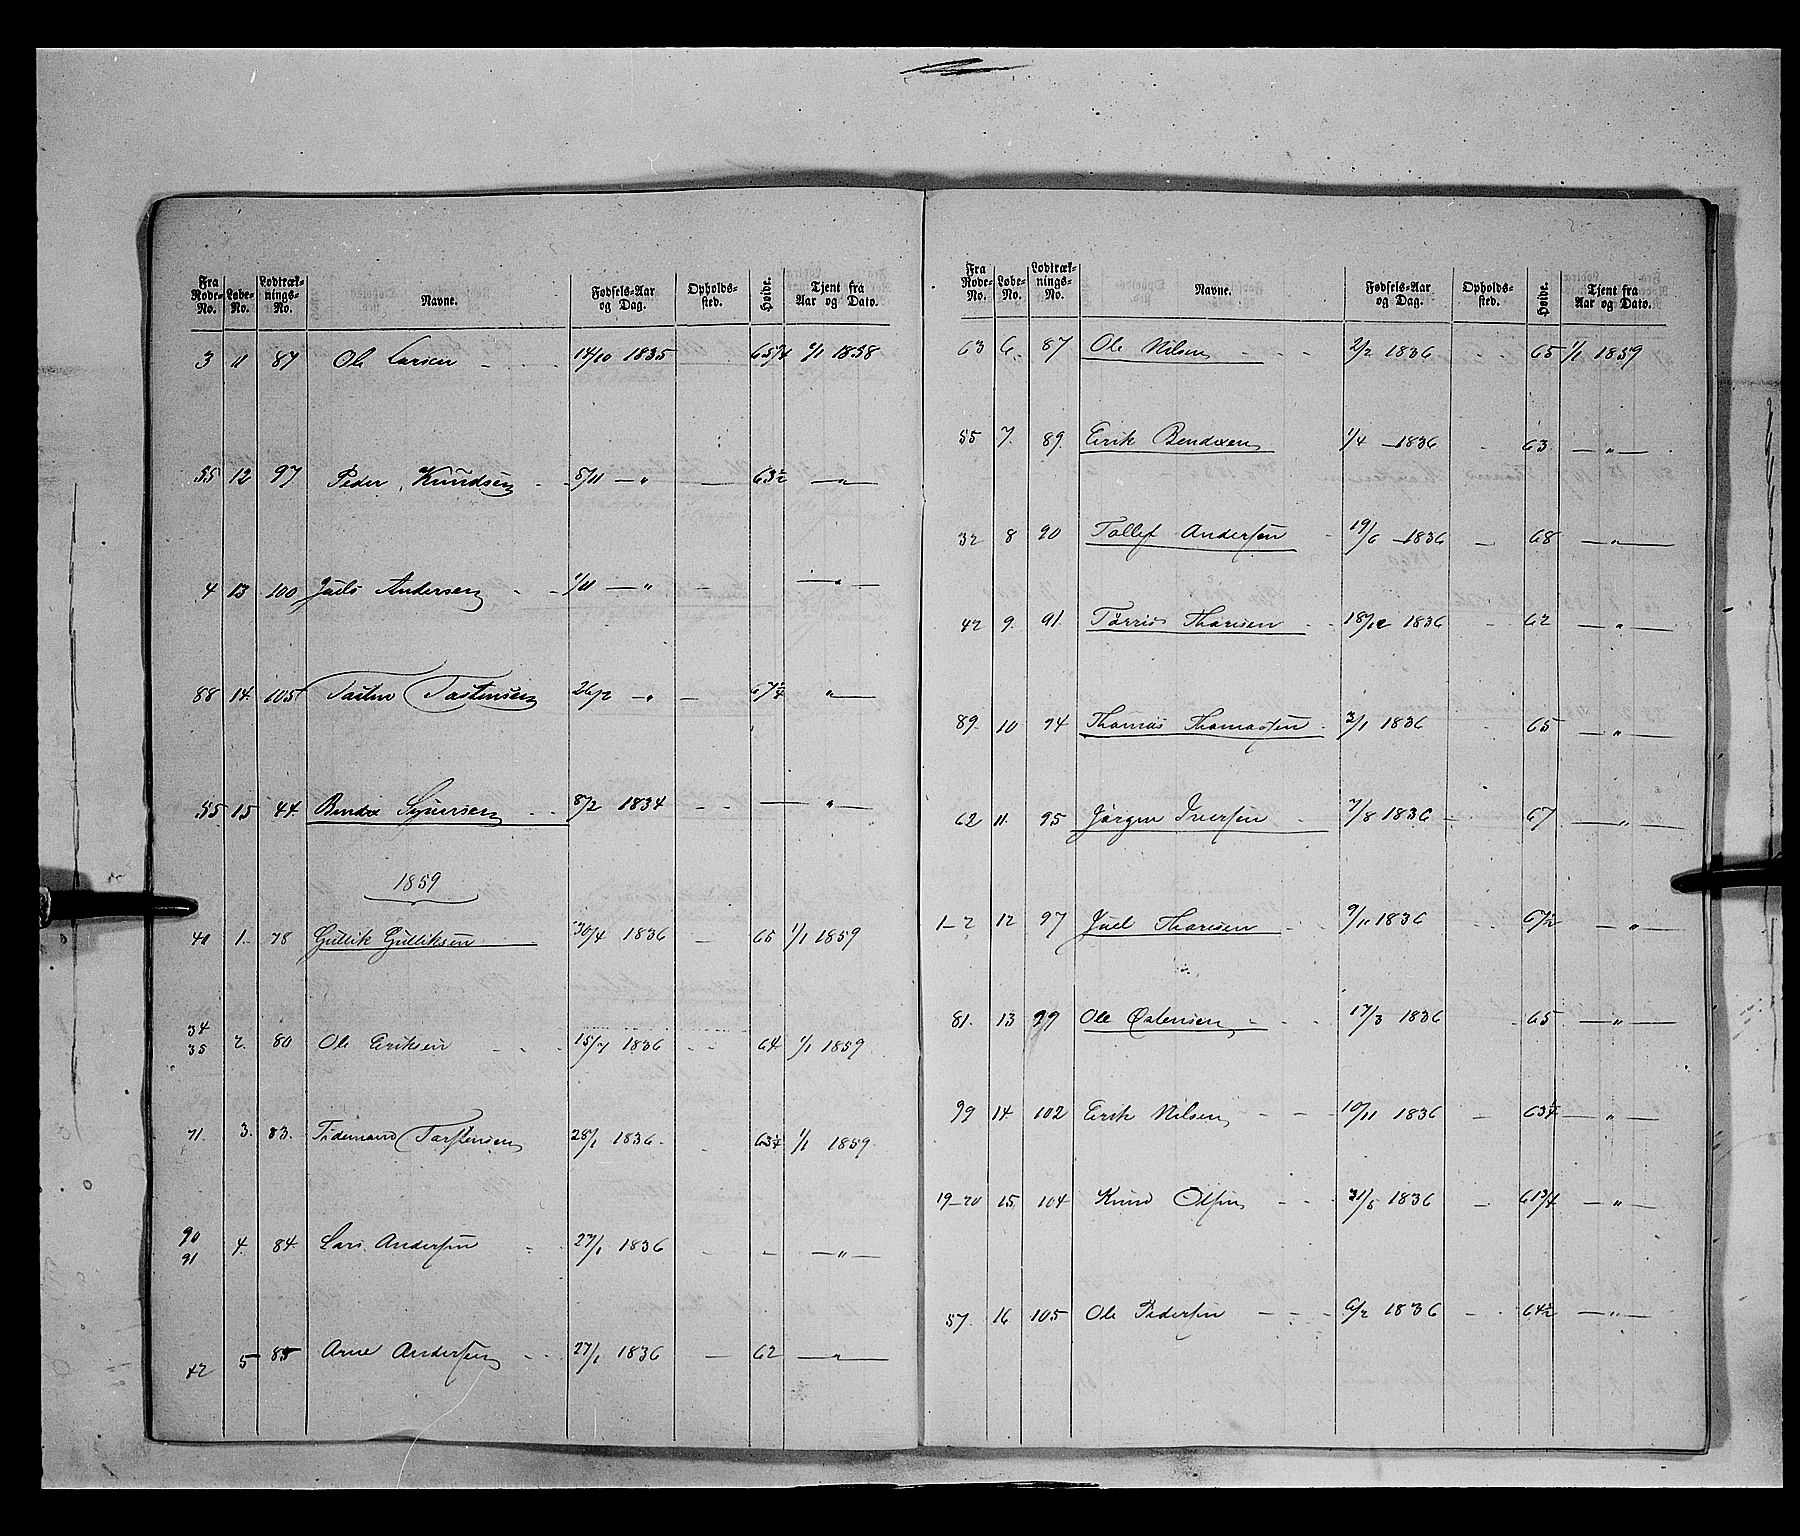 Fra Rode-No. Løbe-No. Lodtræk-nings-No. Navne. Fødsels-Aar og Dag. Opholds-sted. Høide. Tjent fra Aar og Dato.
3 11 87 Ole Larsen - - 14/10 1835 65 3/4 1/1 1858
55 12 97 Peder Knudsen - 5/11 — " — 63½ — " —
4 13 100 Juels Andersen - - 1/11 — " — " —
88 14 105 Tosten Tostensen 26/2 — " — 67¼ " —
55 15 44 Bendix Syversen - - 8/2 1834 - - — " —
1859
40 1. 78 Gullik Gulliksen 30/4 1836 — 65 1/1 1859
34 35 2. 80 Ole Eriksen - - 15/7 1836 - - 64 1/1 1859
71 3. 83. Tidemand Torstensen 28/1 1836 - 63¼ 1/1 1859.
90 91 4. 84. Lars Andersen - 27/1 1836 - - — " —
42 5 85 Arne Andersen - - 27/1 1836 — 62 — " —
Fra Rode-No. Løbe-No. Lodtræk-nings-No. Navne. Fødsels-Aar og Dag. Opholds-sted. Høide. Tjent fra Aar og Dato.
63 6. 87 Ole Nilsen - - - 2/2 1836 - - 65 1/1 1859
55 7. 89. Erik Bendixen 1/4 — 1836 - - 63 — " —
32 8 90 Tollef Andersen - 19/6 — 1836 — 68 — " —
42 9. 91. Tørris Thoresen - - 18/12 1836 - - 62 — " —
89. 10 94 Thomas Thomassen - 3/1 1836 - - 65 — " —
62 11. 95 Jørgen Iversen - 7/8 1836 - - 67 — " —
1-2 12 97 Juel Thoresen - - 9/11 1836 - - 67½ — " —
81. 13 99 Ole Ostensen - - 17/3 1836 - 65 — " —
99 14 102 Erik Nilsen - - 19/11 1836 — 63¼ — " —
19-20 15 104 Knud Olsen - - 31/5 1836 — 61 3/4 — " —
57. 16 105 Ole Pedersen - - - 6/2 1836 - - 64½ — " —